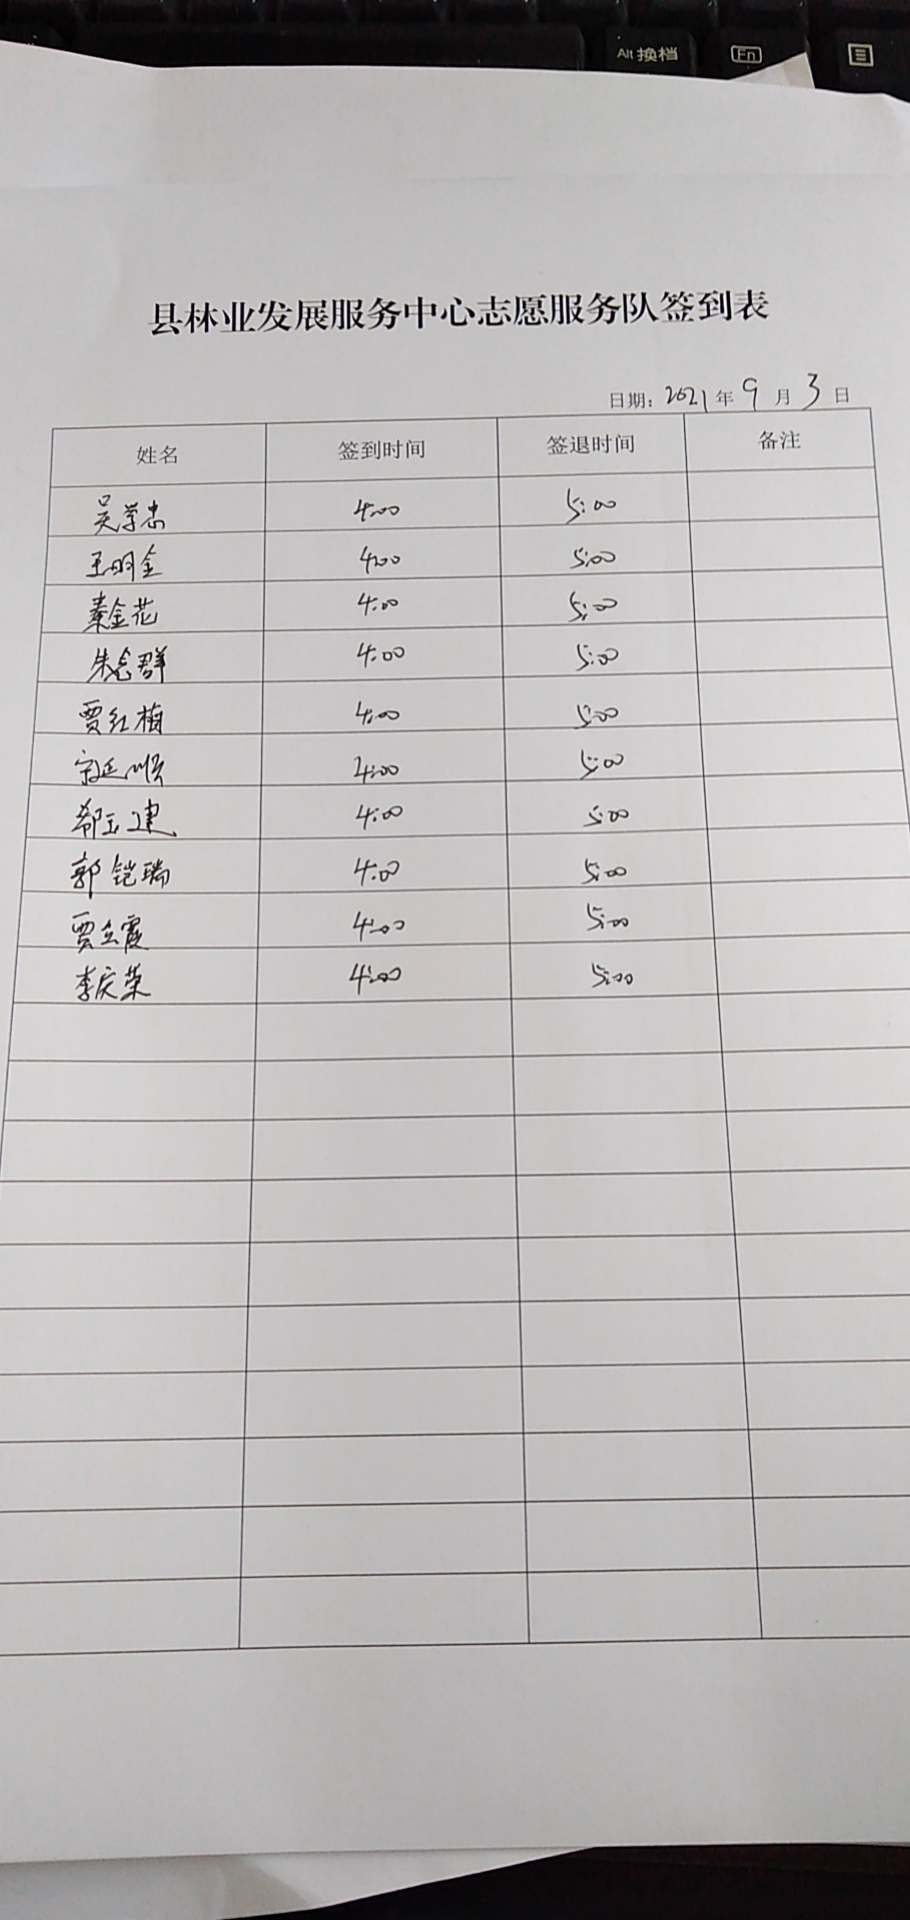 Alt 换档 Fn
县林业发展服务中心志愿服务队签到表
日期: 2021 年 9 月 3 日
姓名 签到时间 签退时间 备注
吴学忠 4:00 5:00
王明金 4:00 5:00
秦金花 4:00 5:00
朱念群 4:00 5:00
贾红梅 4:00 5:00
宋延顺 4:00 5:00
郗玉建 4:00 5:00
郭铠瑞 4:00 5:00
贾立霞 4:00 5:00
李庆荣 4:00 5:00